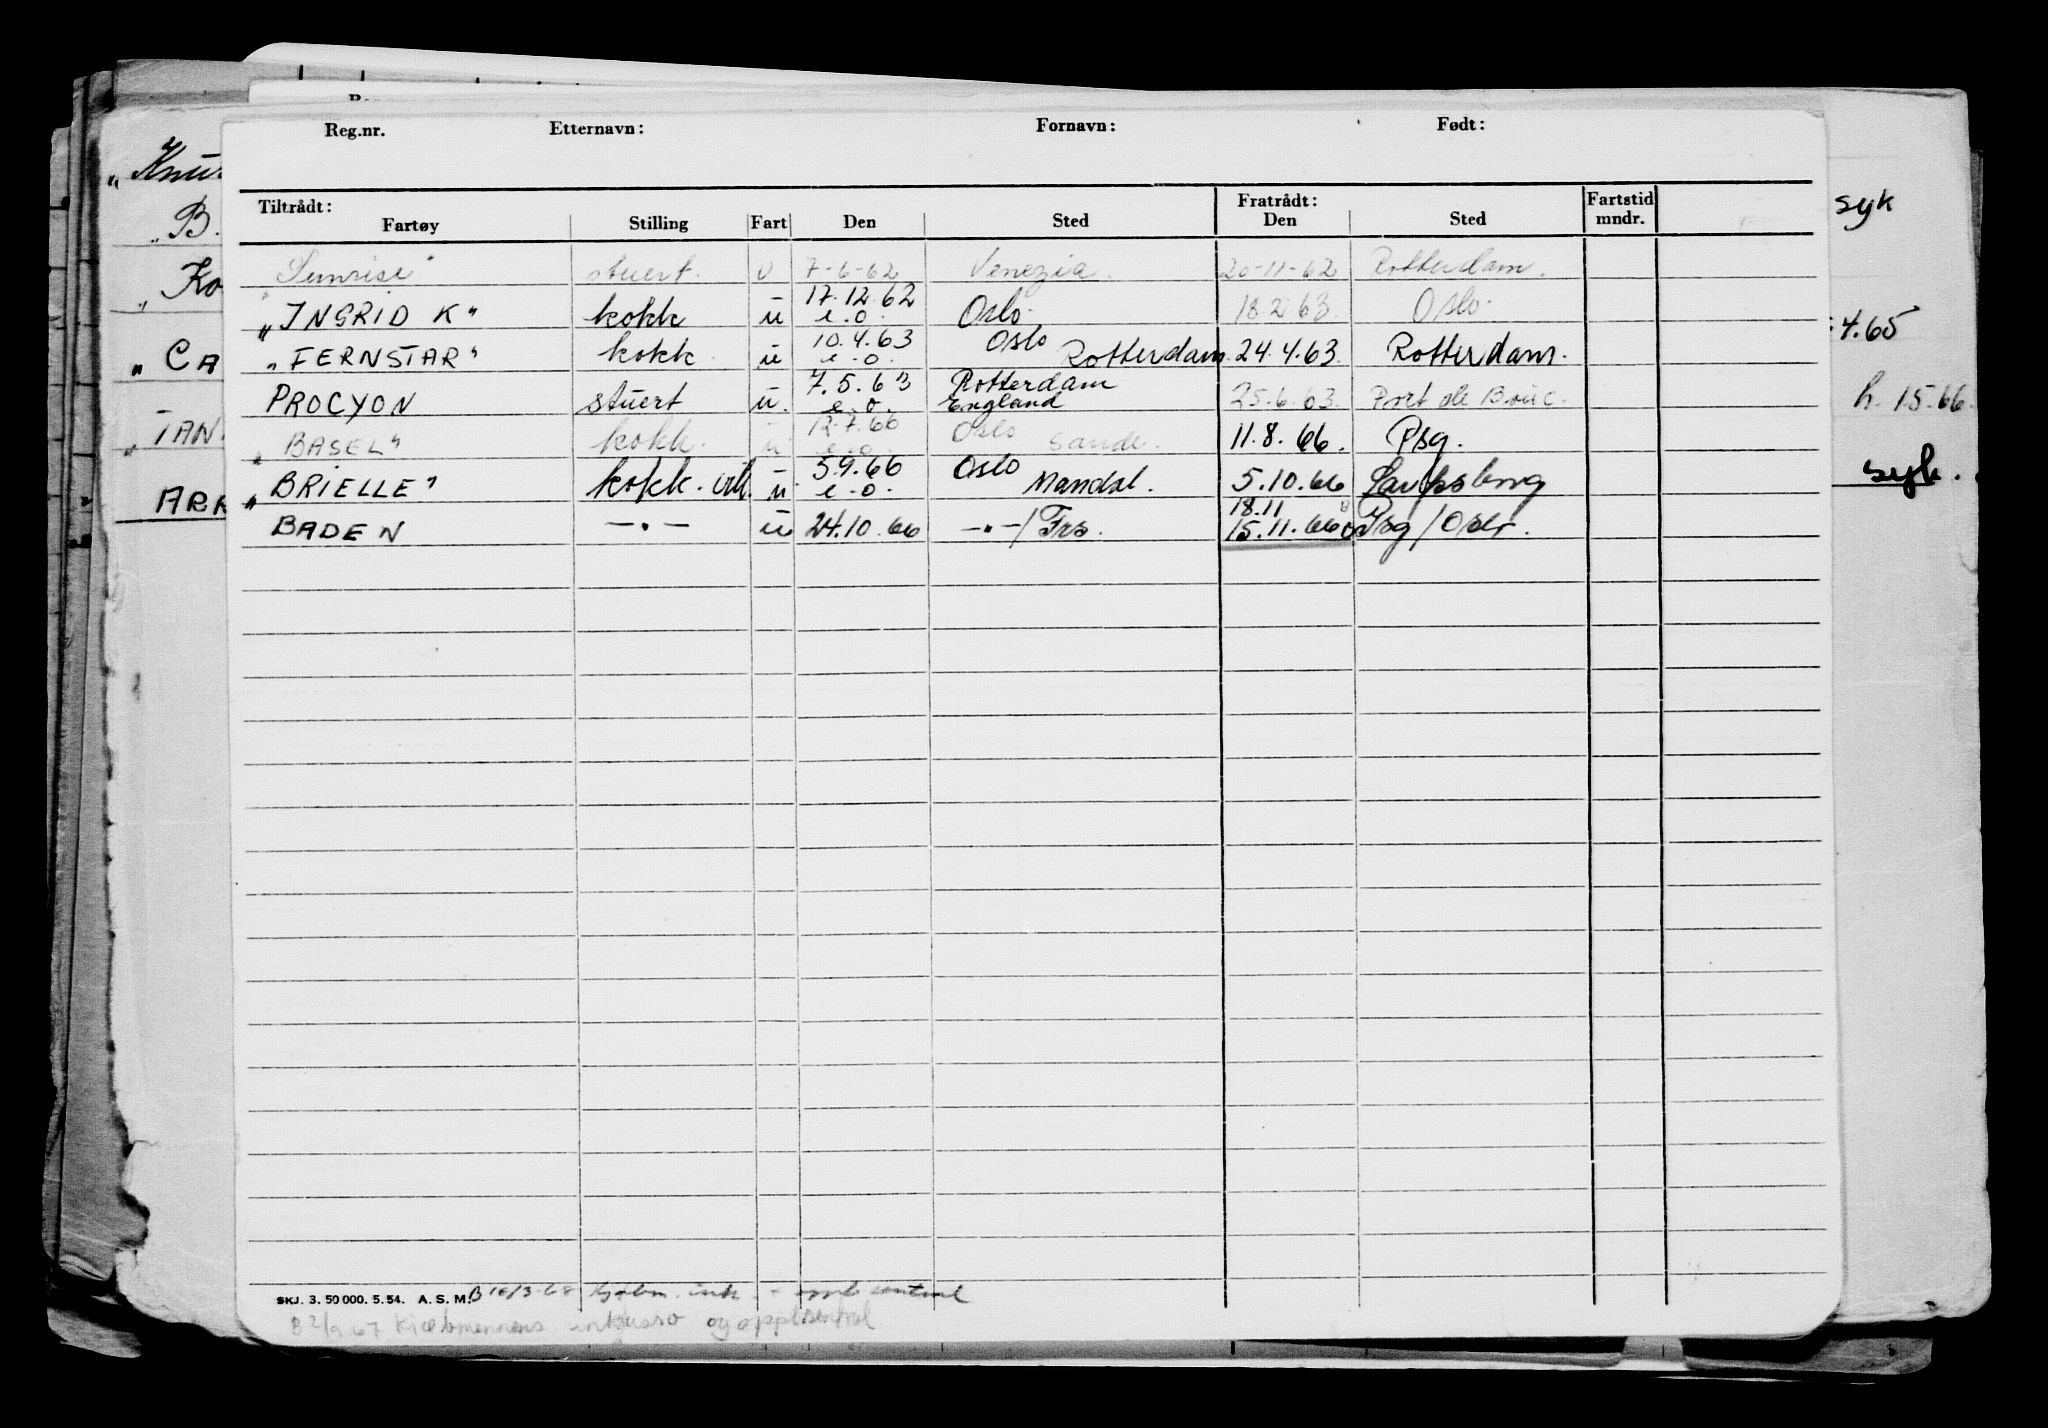 Reg.nr. Etternavn: Fornavn: Født:
Tiltrådt: Fratrådt: Fartstid
Fartøy Stilling Fart Den Sted Den Sted mndr.
"Sunrise" stuert. u 7-6-62 Venezia. 20-11-62 Rotterdam.
"INGRID K" kokk u 17.12.62 e.o. Oslo. 18.2.63. Oslo.
"FERNSTAR" kokk. u 10.4.63 e.o. Oslo Rotterdam. 24.4.63. Rotterdam.
PROCYON stuert u. 7.5.63 e.o. Rotterdam England 25.6.63. Port de Bouc.
"BASEL" kokk. u 12.7.66 e.o. Oslo Sande. 11.8.66. Psg.
"BRIELLE" kokk. u. 5.9.66 e.o. Oslo Mandal. 5.10.66
BADEN —"— u 24.10.66 —"—/Frs. 18.11 15.11.66 Psg/Oslo.
SKJ. 3. 50 000. 5. 54. A. S. M.
B 2/9 67 og oppl.sentral
"Knu
"B.
"Ko
"CA
"TAN
ARK
syk
4.65
h. 1.5.66.
syk.